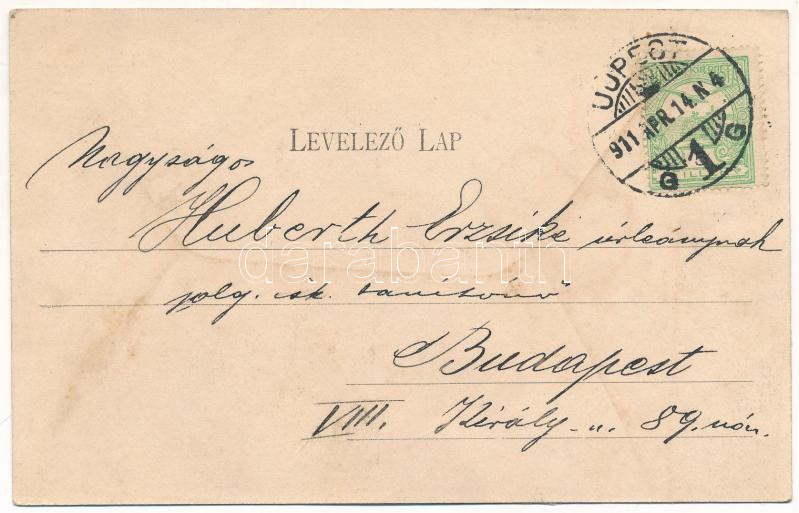 UJPEST
911 APR. 14. N 4
G 1 G
LEVELEZŐ LAP
Nagyságos
Huberth Erzsike úrleánynak
polg. isk. tanitónő
Budapest
VIII. Király-u. 89. szám.
darabanth